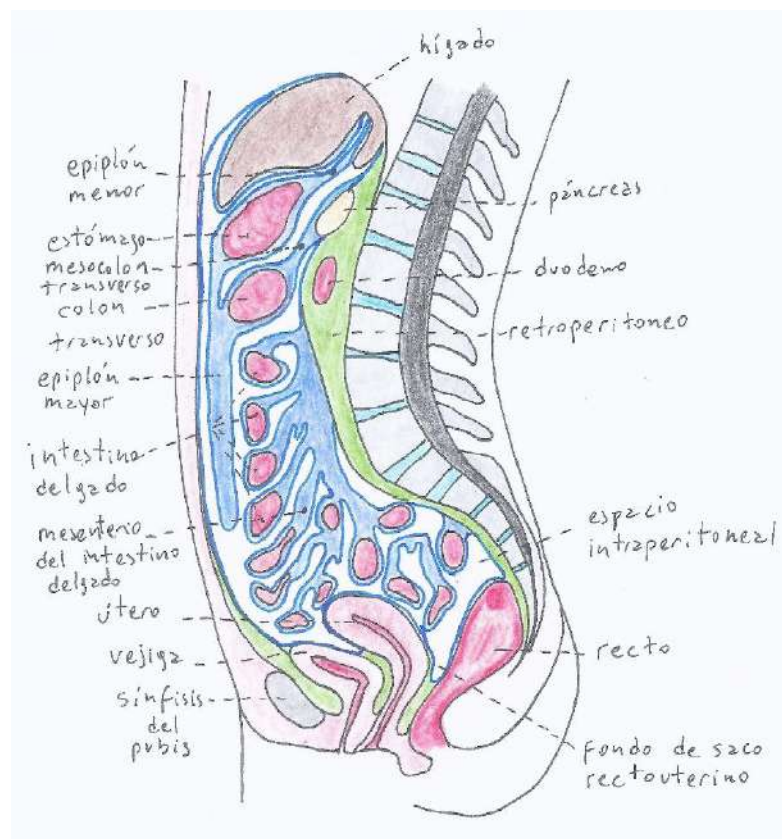 hígado
epiplón
menor
estómago
mesocolon
transverso
colon
transverso
epiplón
mayor
intestino
delgado
mesenterio
del intestino
delgado
útero
vejiga
sínfisis
del
pubis
páncreas
duodeno
retroperitoneo
espacio
intraperitoneal
recto
fondo de saco
rectouterino